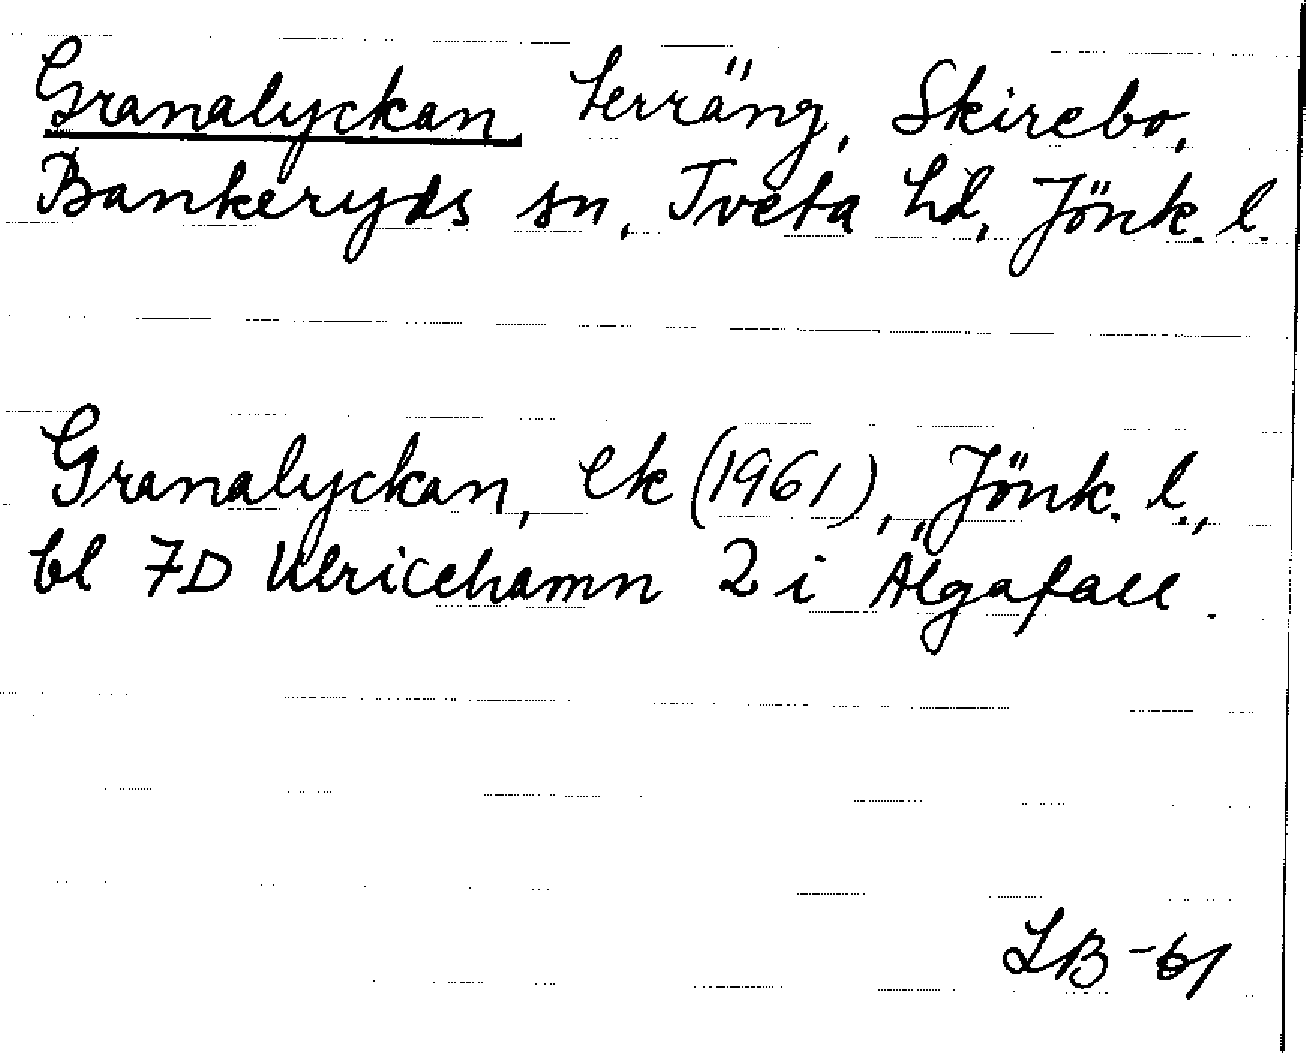 Granalyckan terräng, Skirebo,
Bankeryds sn, Tveta hd, Jönk. l.
Granalyckan, ek (1961), Jönk. l.,
bl 7D Ulricehamn 2 i Älgafall.
LB -61